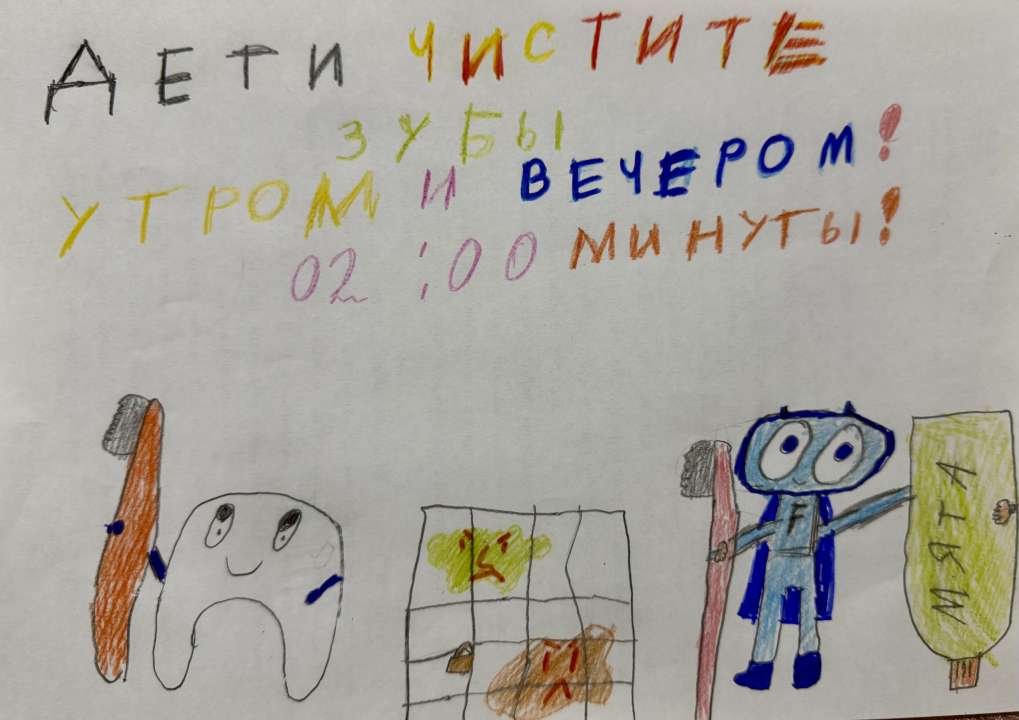 ДЕТИ ЧИСТИТЕ
ЗУБЫ
УТРОМ И ВЕЧЕРОМ!
02:00 МИНУТЫ!
F
МЯТА